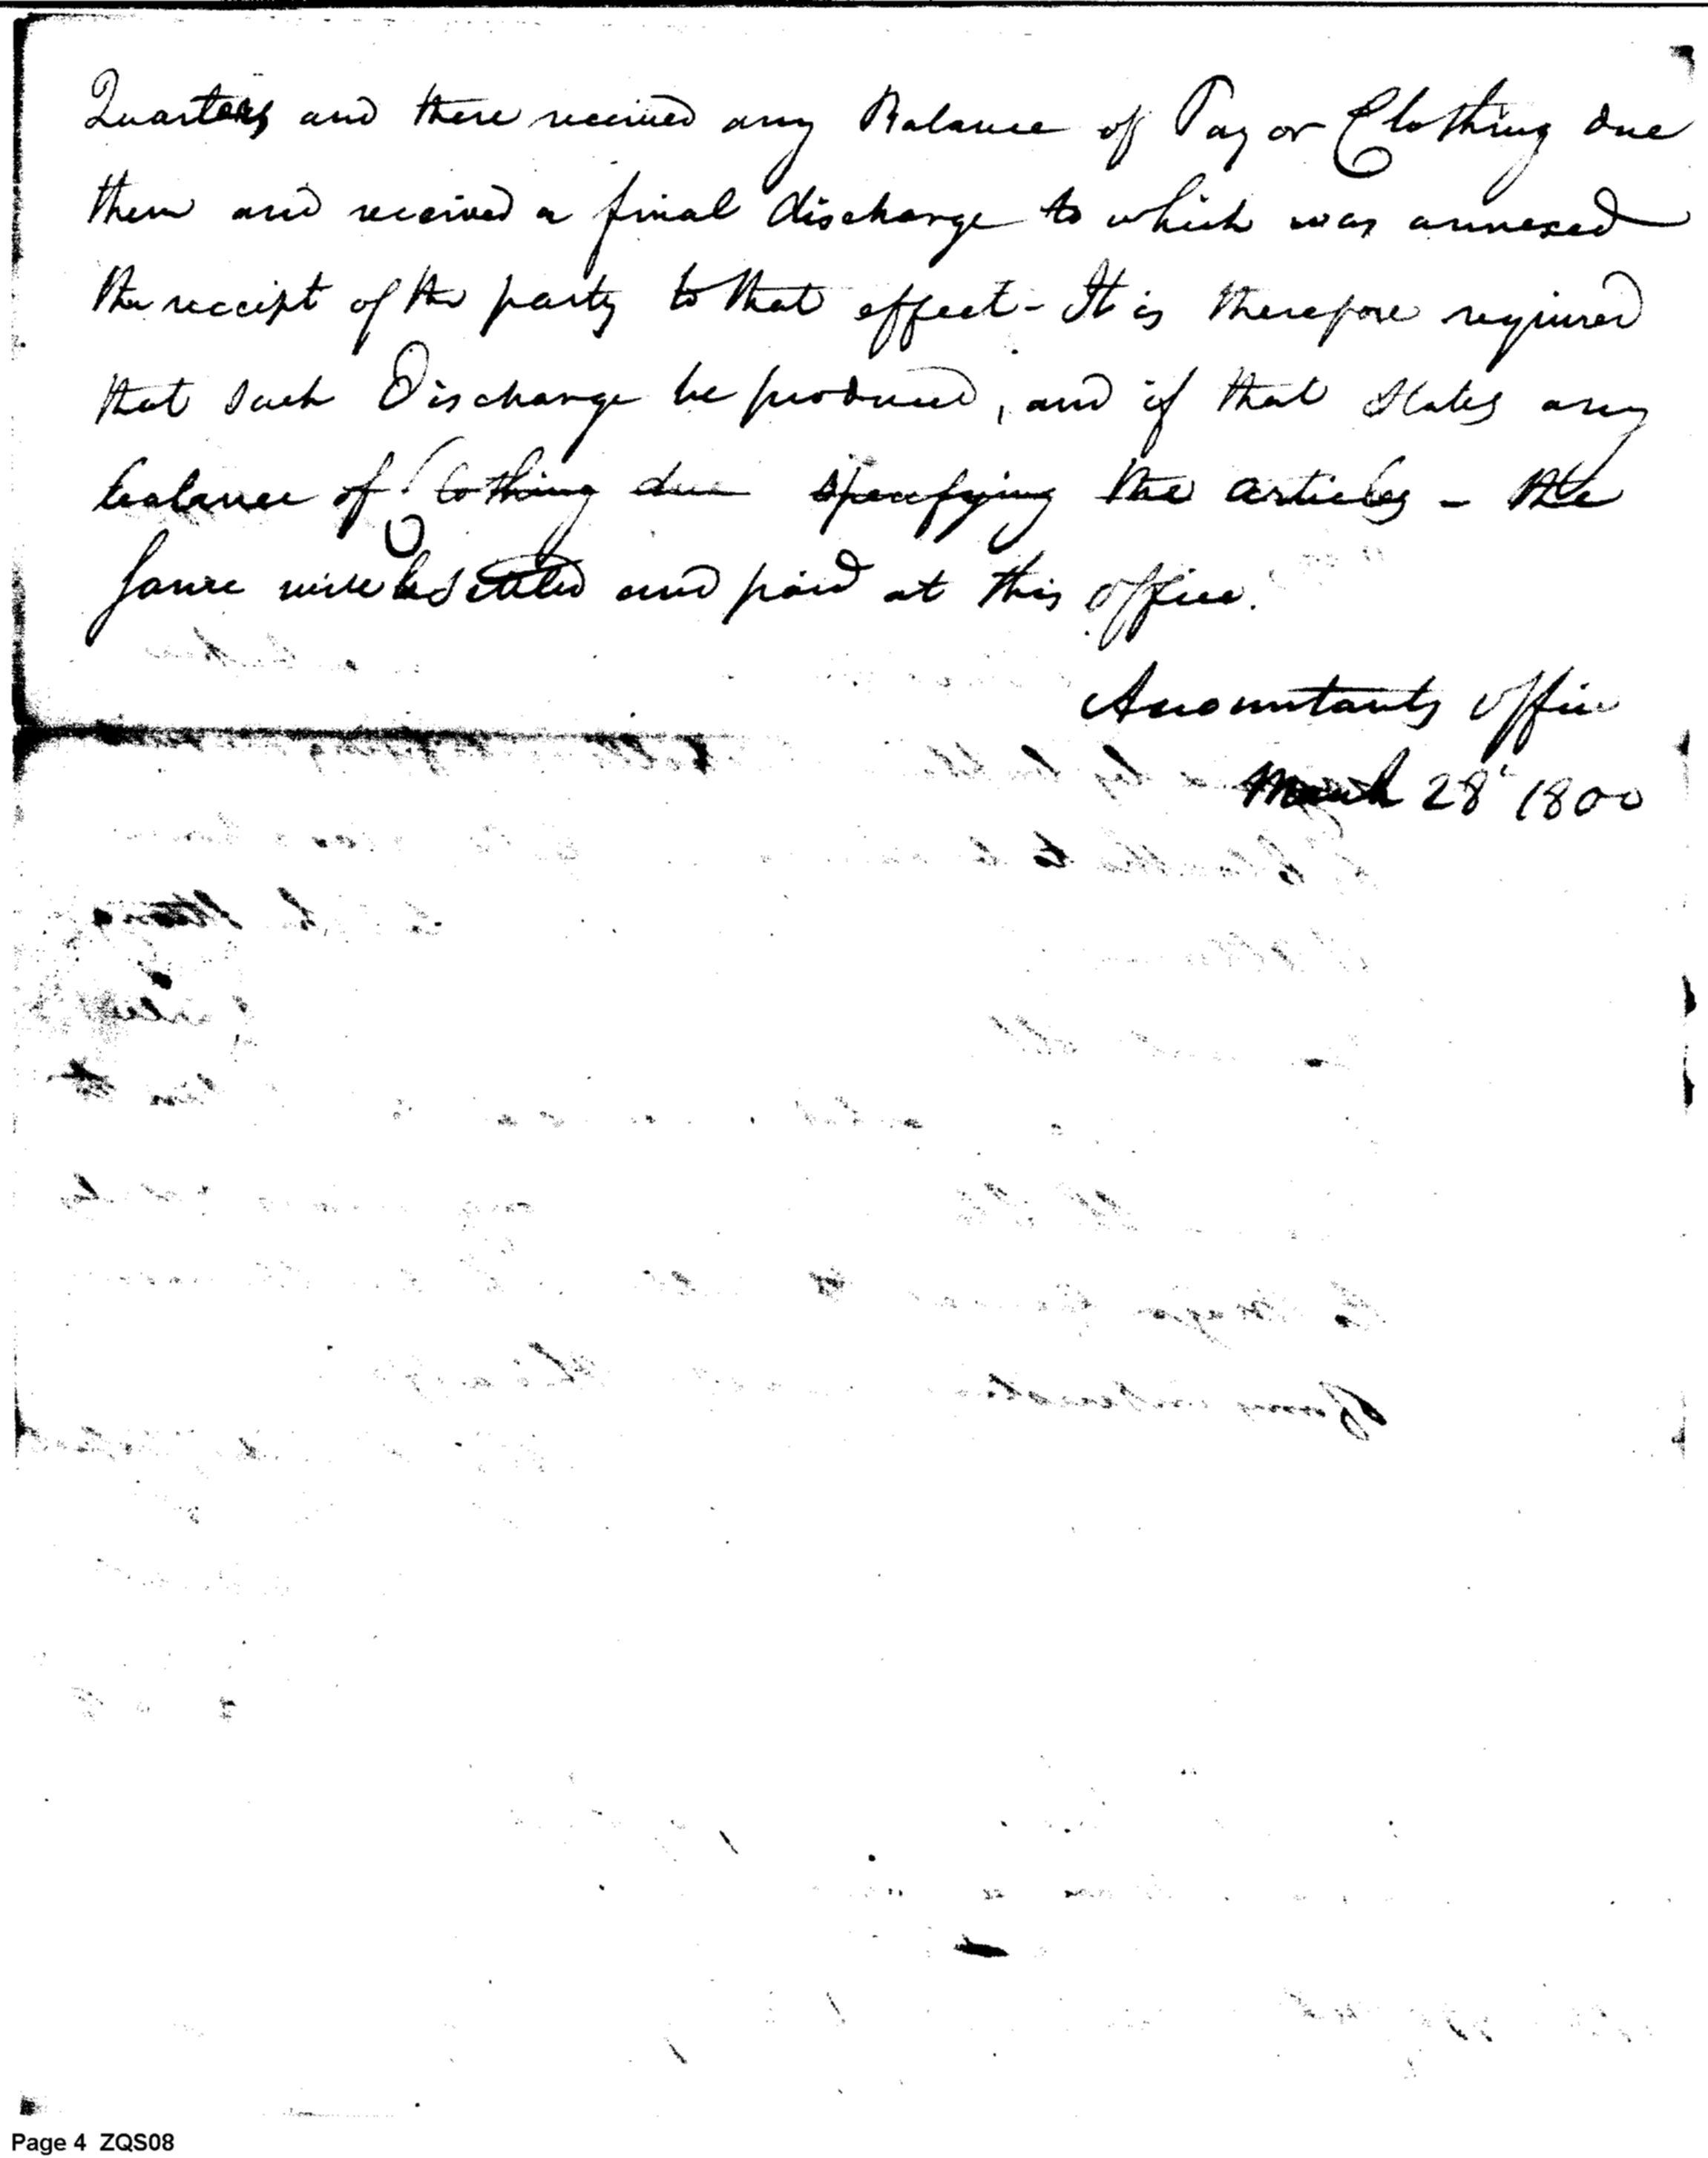 Quarters and there received any Balance of Pay or Clothing due
them and received a final discharge to which was annexed
the receipt of the party to that effect - It is therefore required
that such Discharge be produced, and if that states any
balance of Clothing due specifying the articles - the
same will be settled and paid at this office.
Accountants office
March 28 1800
Page 4 ZQS08